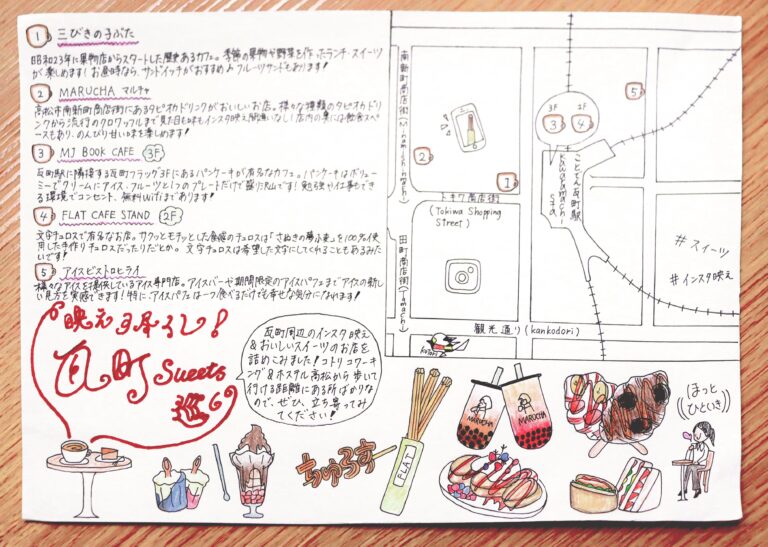 1 三びきの子ぶた
昭和23年に果物店からスタートした歴史あるカフェ。季節の果物や野菜を作ったランチ・スイーツ
が楽しめます!お昼時なら、サンドイッチがおすすめ♪フルーツサンドもあります!
2 MARUCHA マルチャ
高松市南新町商店街にあるタピオカドリンクがおいしいお店。様々な種類のタピオカドリ
ンクから流行のクロワッフルまで見た目も味もインスタ映え間違いなし!店内の奥には飲食スペ
ースもあり、のんびり甘い味を楽しめます!
3 MJ BOOK CAFE 3F
瓦町駅に隣接する瓦町フラッグ3Fにあるパンケーキが有名なカフェ。パンケーキはボリュー
ミーでクリームにアイス、フルーツと1つのプレートだけで盛り沢山です!勉強や仕事もでき
る環境でコンセント、無料Wifiまであります!
4 FLAT CAFE STAND 2F
文字チュロスで有名なお店。サクッとモチッとした食感のチュロスは「さぬきの夢小麦」を100%使
用した手作りチュロスだったりだとか。文字チュロスは希望した文字にしてくれることもあるみ
たいです!
5 アイスビストロヒライ
様々なアイスを提供しているアイス専門店。アイスバーや期間限定のアイスパフェまでアイスの新し
い見方を実感できます!特に、アイスパフェは一つ食べるだけでも幸せな気分になれます!
映え間違いなし!
瓦町 Sweets
巡り
瓦町周辺のインスタ映え
&おいしいスイーツのお店を
詰めこみました!コトリコワーキ
ング&ホステル高松から歩いて
行ける距離にある所ばかりな
ので、ぜひ、立ち寄ってみ
てください!
南新町商店街 (Minamishinmachi)
2
1
3F
3
2F
4
5
ことでん瓦町駅
kawaramachi
Sta
トキワ商店街
(Tokiwa Shopping
Street)
田町商店街 (Tamachi)
#スイーツ
#インスタ映え
観光通り (kankodori)
kotori
ちゅろす
FLAT
MARUCHA
MARUCHA
ほっと
ひといき